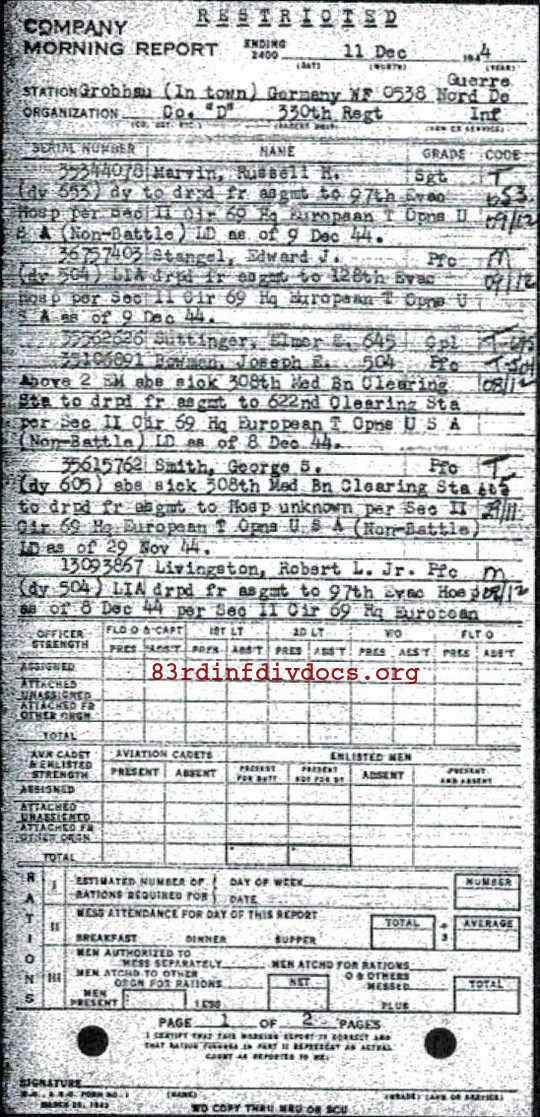 RESTRICTED
COMPANY
MORNING REPORT ENDING 2400 11 Dec 1944
(DAY) (MONTH) (YEAR)
Guerre
STATION Grobhau (In town) Germany WF 0538 Nord De
ORGANIZATION Co. "D" 330th Regt Inf
SERIAL NUMBER NAME GRADE CODE
35344078 Marvin, Russell H. Sgt T
(dy 653) dy to drpd fr asgmt to 97th Evac 653
Hosp per Sec II Cir 69 Hq European T Opns U 09/12
S A (Non-Battle) LD as of 9 Dec 44.
36757403 Stangel, Edward J. Pfc M
(dy 504) LIA drpd fr asgmt to 128th Evac 09/12
Hosp per Sec II Cir 69 Hq European T Opns U
S A as of 9 Dec 44.
35562626 Suttinger, Elmer E. 645 Cpl T-645
35106891 Bowman, Joseph E. 504 Pfc T-504
Above 2 EM abs sick 308th Med Bn Clearing 08/12
Sta to drpd fr asgmt to 622nd Clearing Sta
per Sec II Cir 69 Hq European T Opns U S A
(Non-Battle) LD as of 8 Dec 44.
35615762 Smith, George S. Pfc T
(dy 605) abs sick 308th Med Bn Clearing Sta 605
to drpd fr asgmt to Hosp unknown per Sec II 29/11
Cir 69 Hq European T Opns U S A (Non-Battle)
LD as of 29 Nov 44.
13093867 Livingston, Robert L. Jr. Pfc M
(dy 504) LIA drpd fr asgmt to 97th Evac Hosp 08/12
as of 8 Dec 44 per Sec II Cir 69 Hq European
OFFICER STRENGTH FLD O & CAPT 1ST LT 2D LT W O FLT O
PRES ABS'T PRES ABS'T PRES ABS'T PRES ABS'T PRES ABS'T
ASSIGNED
83rdinfdivdocs.org
ATTACHED UNASSIGNED
ATTACHED FR OTHER ORGN
TOTAL
AVN CADET & ENLISTED STRENGTH AVIATION CADETS ENLISTED MEN
PRESENT ABSENT PRESENT FOR DUTY PRESENT NOT FOR DY ABSENT PRESENT AND ABSENT
ASSIGNED
ATTACHED UNASSIGNED
ATTACHED FR OTHER ORGN
TOTAL
RATIONS
I ESTIMATED NUMBER OF RATIONS REQUIRED FOR DAY OF WEEK DATE NUMBER
II MESS ATTENDANCE FOR DAY OF THIS REPORT TOTAL ÷ 3 AVERAGE
BREAKFAST DINNER SUPPER
III MEN AUTHORIZED TO MESS SEPARATELY MEN ATCHD FOR RATIONS
MEN ATCHD TO OTHER ORGN FOR RATIONS NET O & OTHERS MESSED TOTAL
MEN PRESENT LESS PLUS
PAGE 1 OF 2 PAGES
I CERTIFY THAT THIS MORNING REPORT IS CORRECT AND
THAT RATION FIGURES IN PART II REPRESENT AN ACTUAL
COUNT AS REPORTED TO ME:
SIGNATURE
W.D., A.G.O. FORM NO. 1 (NAME) (GRADE) (ARM OR SERVICE)
MARCH 25, 1943
WD COPY THRU MRU OR SCU